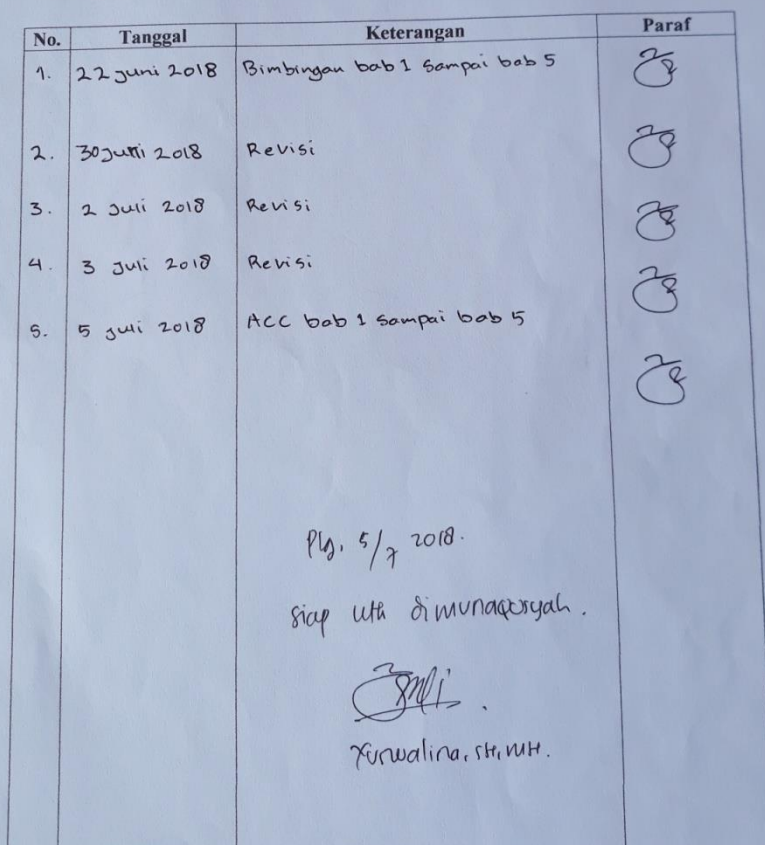 No. Tanggal Keterangan Paraf
1. 22 Juni 2018 Bimbingan bab 1 sampai bab 5
2. 30 Juni 2018 Revisi
3. 2 Juli 2018 Revisi
4. 3 Juli 2018 Revisi
5. 5 Juli 2018 ACC bab 1 sampai bab 5
Plg, 5/7 2018.
siap utk dimunaqosyah.
SH, MH.